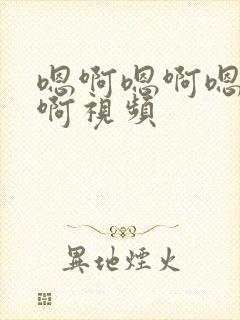 嗯啊嗯啊嗯
啊視頻
異地煙火